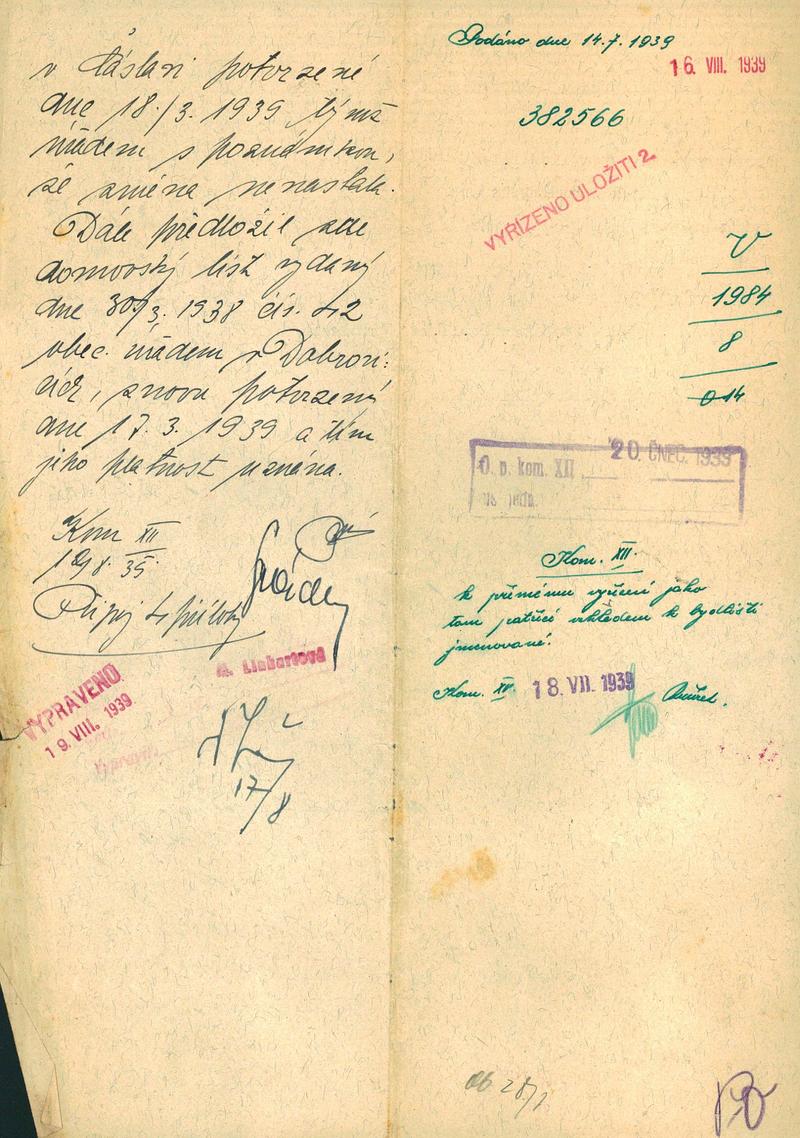 v Čáslavi potvrzené
dne 18./3. 1939 týmž
úřadem s poznámkou,
že změna nenastala.
Dále předložil zde
domovský list vydaný
dne 30/3. 1938 čís. 42
obec. úřadem v Dobrovi:
cích, znovu potvrzený
dne 17. 3. 1939 a tím
jeho platnost uznána.
Kom XII
Připoj 4 přílohy
A. Linhartová
VYPRAVENO
19. VIII. 1939
17/8
Podáno dne 14.7.1939
16. VIII. 1939
382566
VYŘÍZENO ULOŽITI 2.
V
1984
8
014
20. ČNEC. 1939
O. p. kom. XII
Kom. XII.
k přímému vyřízení jako
tam patřící vzhledem k bydlišti
jmenované.
Kom. XV. 18. VII. 1939